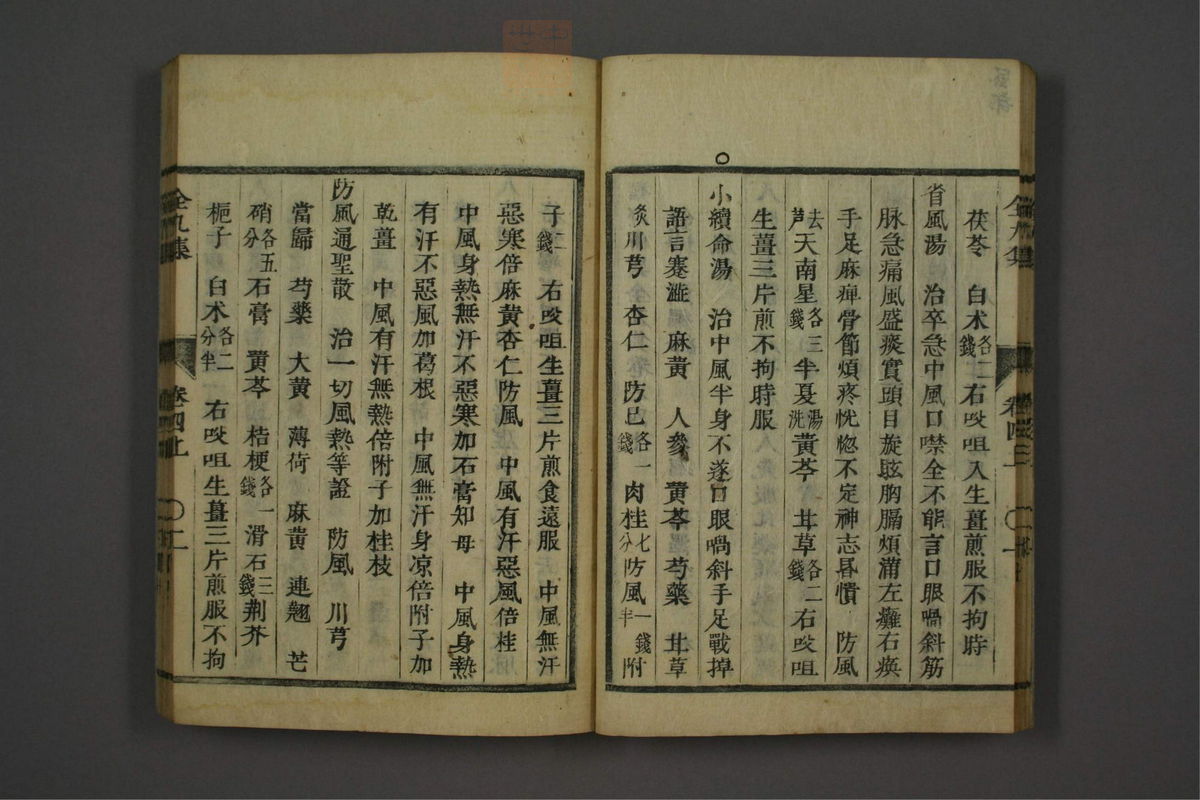 茯苓　白朮各二錢右㕮咀入生薑煎服不拘時
省風湯　治卒急中風口噤全不能言口眼喎斜筋
脉急痛風盛痰實頭目旋眩胸膈煩滿左癱右瘓
手足麻痺骨節煩疼恍惚不定神志昬憒　防風
去芦天南星各三錢半夏湯洗黃芩　甘草各二錢右㕮咀
生薑三片煎不拘時服
小續命湯　治中風半身不遂口眼喎斜手足戰掉
語言蹇澁　麻黃　人參　黃芩　芍藥　甘草
炙川芎　杏仁　防已各一錢肉桂七分防風一錢半附
子二錢右㕮咀生薑三片煎食遠服　中風無汗
惡寒倍麻黃杏仁防風　中風有汗惡風倍桂
中風身熱無汗不惡寒加石膏知母　中風身熱
有汗不惡風加葛根　中風無汗身凉倍附子加
乾薑　中風有汗無熱倍附子加桂枝
防風通聖散　治一切風熱等證　防風　川芎
當歸　芍藥　大黃　薄荷　麻黃　連翹　芒
硝各五分石膏　黃芩　桔梗各一錢滑石三錢荆芥
梔子　白朮各二分半　右㕮咀生薑三片煎服不拘
全九集
卷四上
〇二